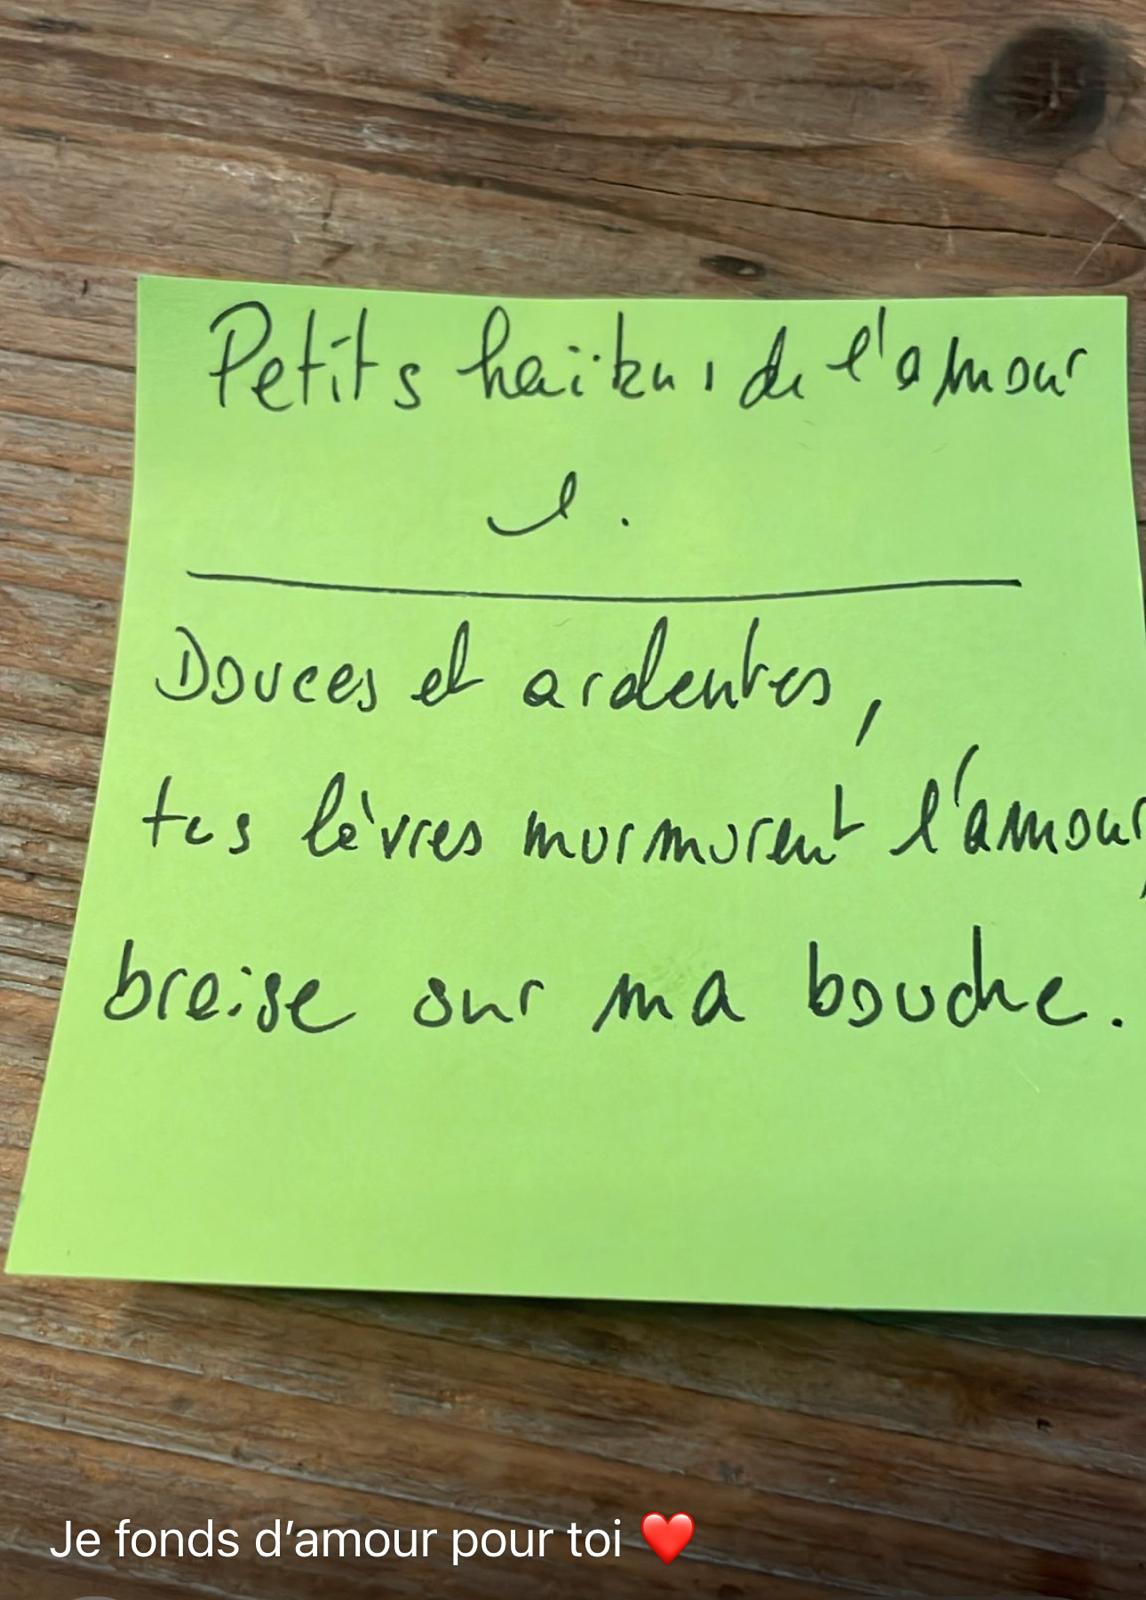 Petits haïkus de l'amour
Douces et ardentes,
tes lèvres murmurent l'amour,
braise sur ma bouche.
Je fonds d'amour pour toi ❤️